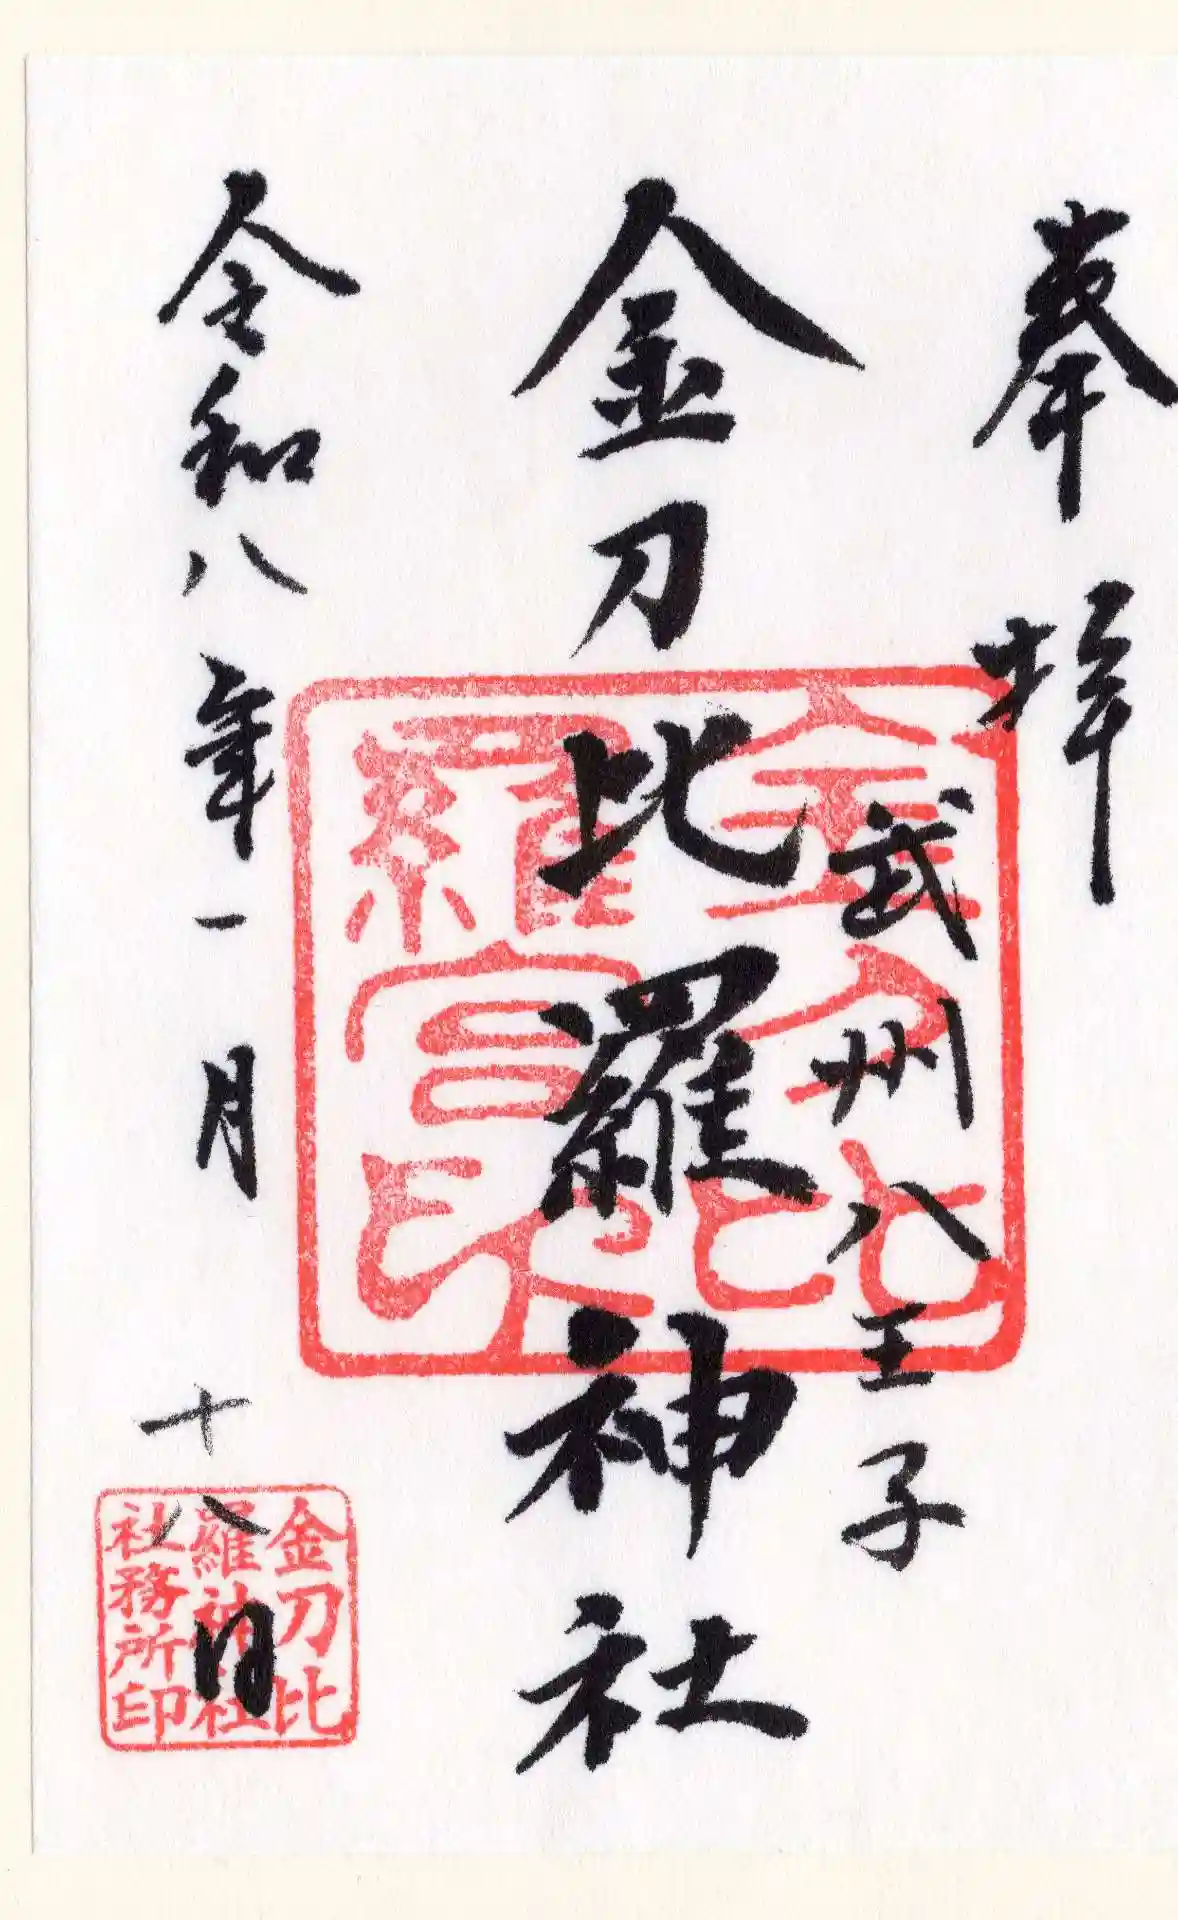 奉拝
武州八王子
金刀比羅神社
金刀比羅宮印
令和八年一月十八日
金刀比羅神社社務所印